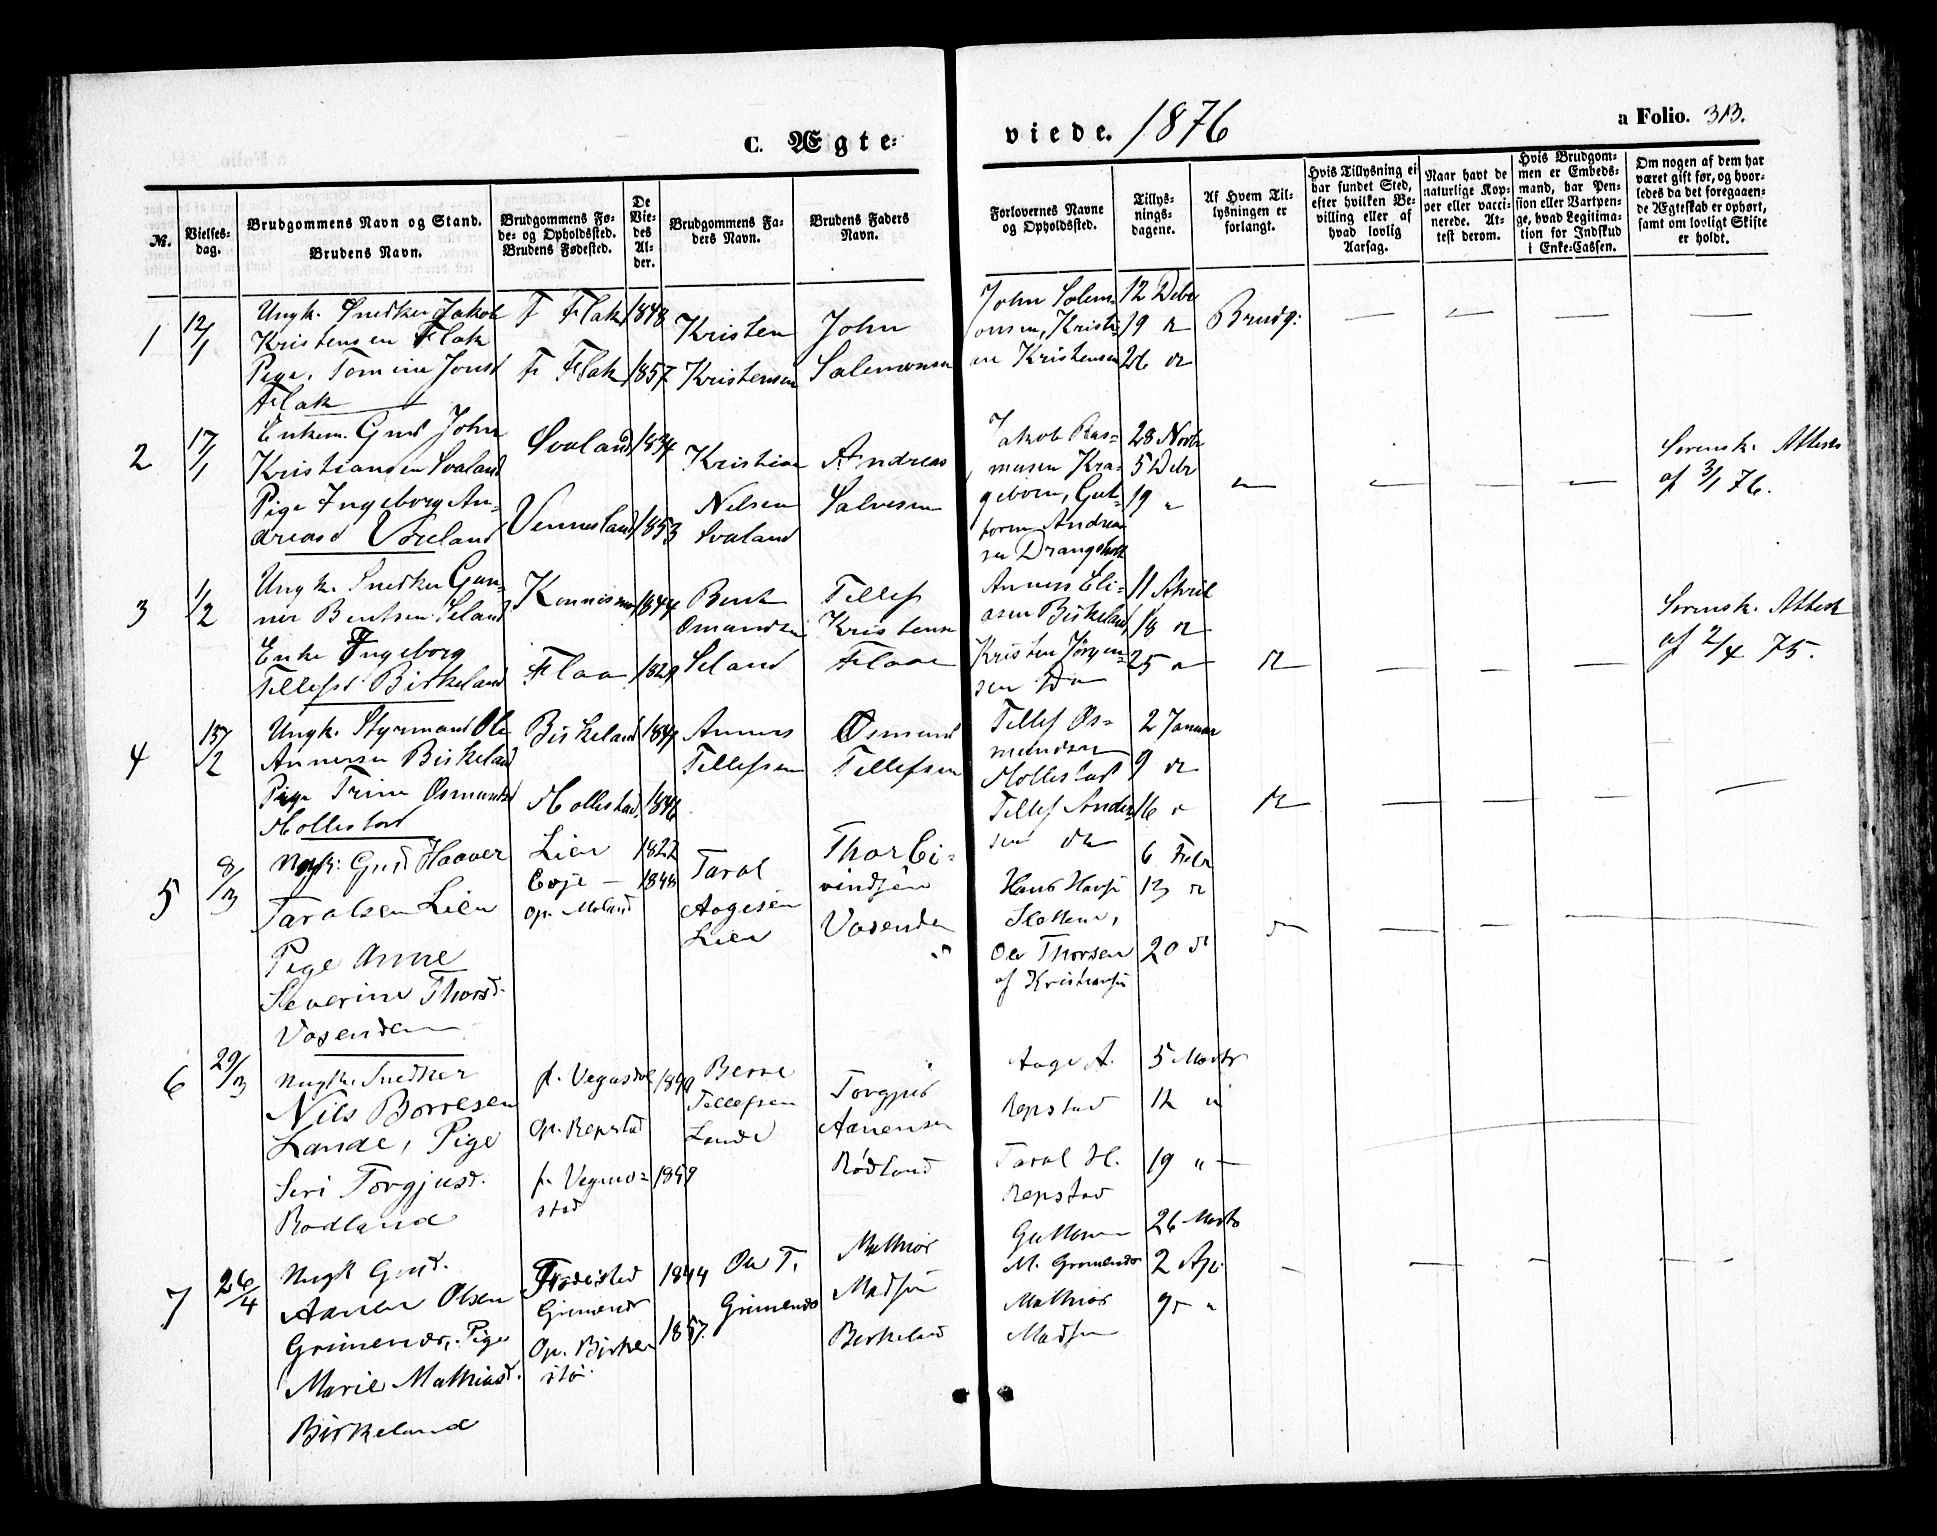 C. Ægte-
viede. 1876
a Folio. 313.
No.
Vielses-
dag.
Brudgommens Navn og Stand.
Brudens Navn.
Brudgommens Fø-
de- og Opholdssted.
Brudens Fødested.
De
Vie-
des
Al-
der.
Brudgommens Fa-
ders Navn.
Brudens Faders
Navn.
Forlovernes Navne
og Opholdssted.
Tillys-
nings-
dagene.
Af Hvem Til-
lysningen er
forlangt.
Hvis Tillysning ei
har fundet Sted,
efter hvilken Be-
villing eller af
hvad lovlig
Aarsag.
Naar havt de
naturlige Kop-
per eller vacci-
nerede. At-
test derom.
Hvis Brudgom-
men er Embeds-
mand, har Pen-
sion eller Vartpen-
ge, hvad Legitima-
tion for Indskud
i Enke-Cassen.
Om nogen af dem har
været gift før, og hvor-
ledes da det foregaaen-
de Ægteskab er ophørt,
samt om lovligt Skifte
er holdt.
1
12/1
Ungk. Snedker Jakob
Kristensen Flak
Pige. Tomine Jonsd
Flak
F Flak
F. Flak
1848
1857
Kristen
Kristensen
John
Salemonsen
John Salem-
onsen, Kristi-
en Kristensen
12 Debr
19 do
26 do
Brudg:
2
17/1
Enkem. Gmd John
Kristiansen Svaland
Pige Ingeborg An-
dreasd Voreland
Svaland
Vennesland
1834
1853
Kristian
Nilsen
Svaland
Andreas
Salvesen
Jakob Ras-
musen Kra-
geboen, Gut-
torm Andrea-
sen Drangsholt
28 Novbr
5 Debr
19 "
Sorensk. Attest
af 3/1 76.
3
1/2
Ungk. Snedker Gun-
ner Bentsen Seland
Enke Ingeborg
Tellefsd Birkeland
Konnismo
Flaa
1844
1829
Bent
Osmundsen
Seland
Tellef
Kristense
Flaae
Anners Eli-
asen Birkeland,
Kristen Jørgen-
sen Do
11 April
18 do
25 do
do
Sorensk. Attest
af 2/4 75.
4
15/2
Ungk. Styrmand Ole
Annersen Birkeland
Pige Trine Osmundsd
Mollestad
Birkeland
Mollestad,
1849
1846
Anners
Tellefsen
Osmund
Tellefsen
Tellef Os-
mundsen
Mollestad
Tellef Ander-
sen do
2 Januar
9 do
16 do
do
5
8/3
Ungk: Gmd Haaver
Taralsen Lien
Pige Anne
Severine Thorsd.
Vosenden
Lien
Evje —
op. Moland
1822
1848
Taral
Aagesen
Lien
Thorbi-
vindsen
Vosenden
Slottene,
Ole Thorsen
af Kristiansen
6 Febr
13 do
20 do
do
6
29/3
Ungk. Snedker
Nils Borresen
Lande, Pige
Seri Torgjusd.
Rodland
f. Vegusdal
op. Repstad
f. Vegus-
stad
1849
Berre
Tellefsen
Lande
Torgjus
Aanensen
Rødland
Aage A.
Repstad
Taral H.
Repstad
5 Marts
12 "
19 "
7
26/4
Ungk Gmd.
Aanen Olsen
Grimenes, Pige
Marie Mathiasd.
Birkeland
Fødested
Grimenes
Op. Birken-
stø.
1844
1857.
Ole T.
Grimenes
Mathias
Madsen
Birkeland
Guttorm
M. Grimenes
Mathias
Madsen
26 Marts
2 Apr.
9 "